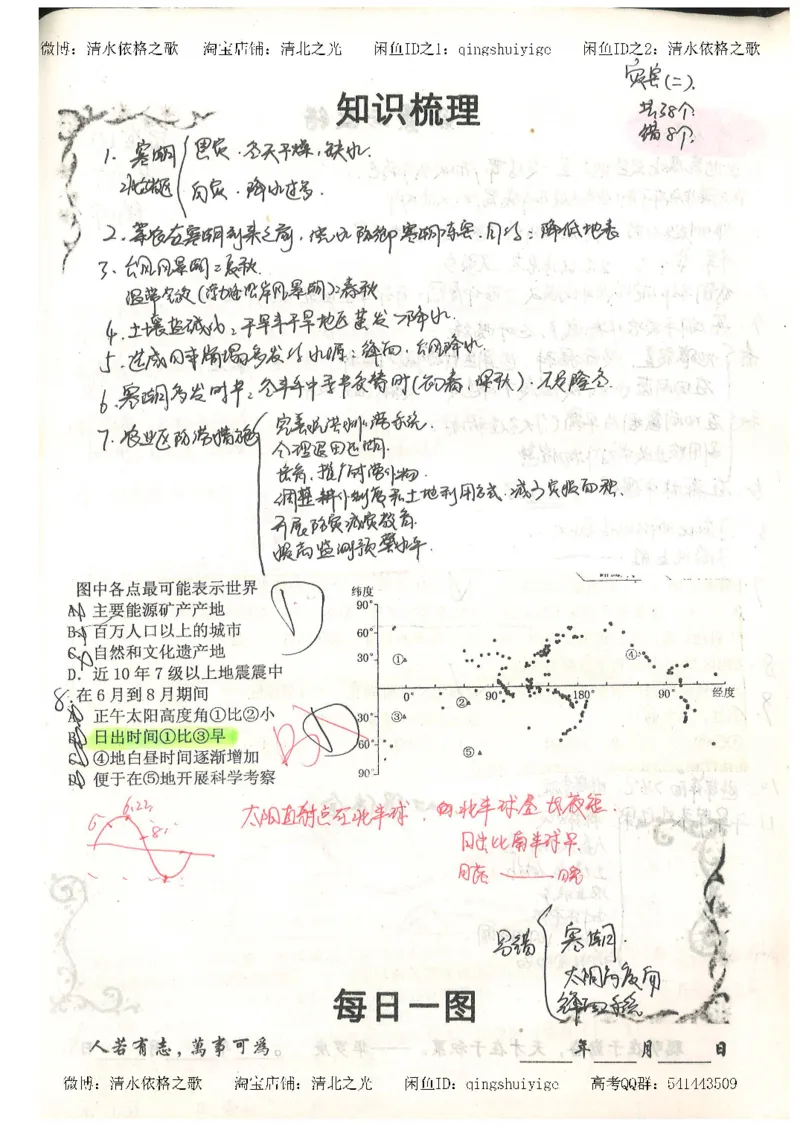 微博：清水依格之歌 淘宝店铺：清北之光 闲鱼ID之1：qingshuiyige 闲鱼ID之2：清水依格之歌
灾害(二).
共38个.
错8个.
知识梳理
1. 寒潮 黑灾．冬天干燥,缺水.
白灾．降水过多.
2. 等方在寒潮到来之前,灌水防御寒潮冻害.目的：降低地表
3. 台风风暴潮：夏秋.
温带气旋(渤海沿岸风暴潮)：春秋
4. 土壤盐碱化：干旱半干旱地区蒸发>降水.
6. 寒潮多发时节：冬半年中季节交替时(初春,深秋).不是隆冬.
7. 农业区防涝措施 完善泄洪排涝系统.
合理退田还湖.
培育、推广耐涝作物.
调整耕作制度和土地利用方式.减少灾损面积.
开展防灾减灾教育.
提高监测预警水平.
图中各点最可能表示世界
A. 主要能源矿产产地
B. 百万人口以上的城市
C. 自然和文化遗产地
D. 近 10 年 7 级以上地震震中
D
8. 在 6 月到 8 月期间
A. 正午太阳高度角①比②小
B. 日出时间①比③早
C. ④地白昼时间逐渐增加
D. 便于在⑤地开展科学考察
B D
纬度
90°
60°
30°
① ④
0° 90° 180° 90° 经度
②
30° ③
60° ⑤
90°
6.22
太阳直射点在北半球．北半球昼长夜短．
日出比南半球早.
日落——晚
易错 寒潮.
太阳高度角
锋面系统
每日一图
人若有志，萬事可為。 年 月 日
微博：清水依格之歌 淘宝店铺：清北之光 闲鱼ID：qingshuiyige 高考QQ群：541443509